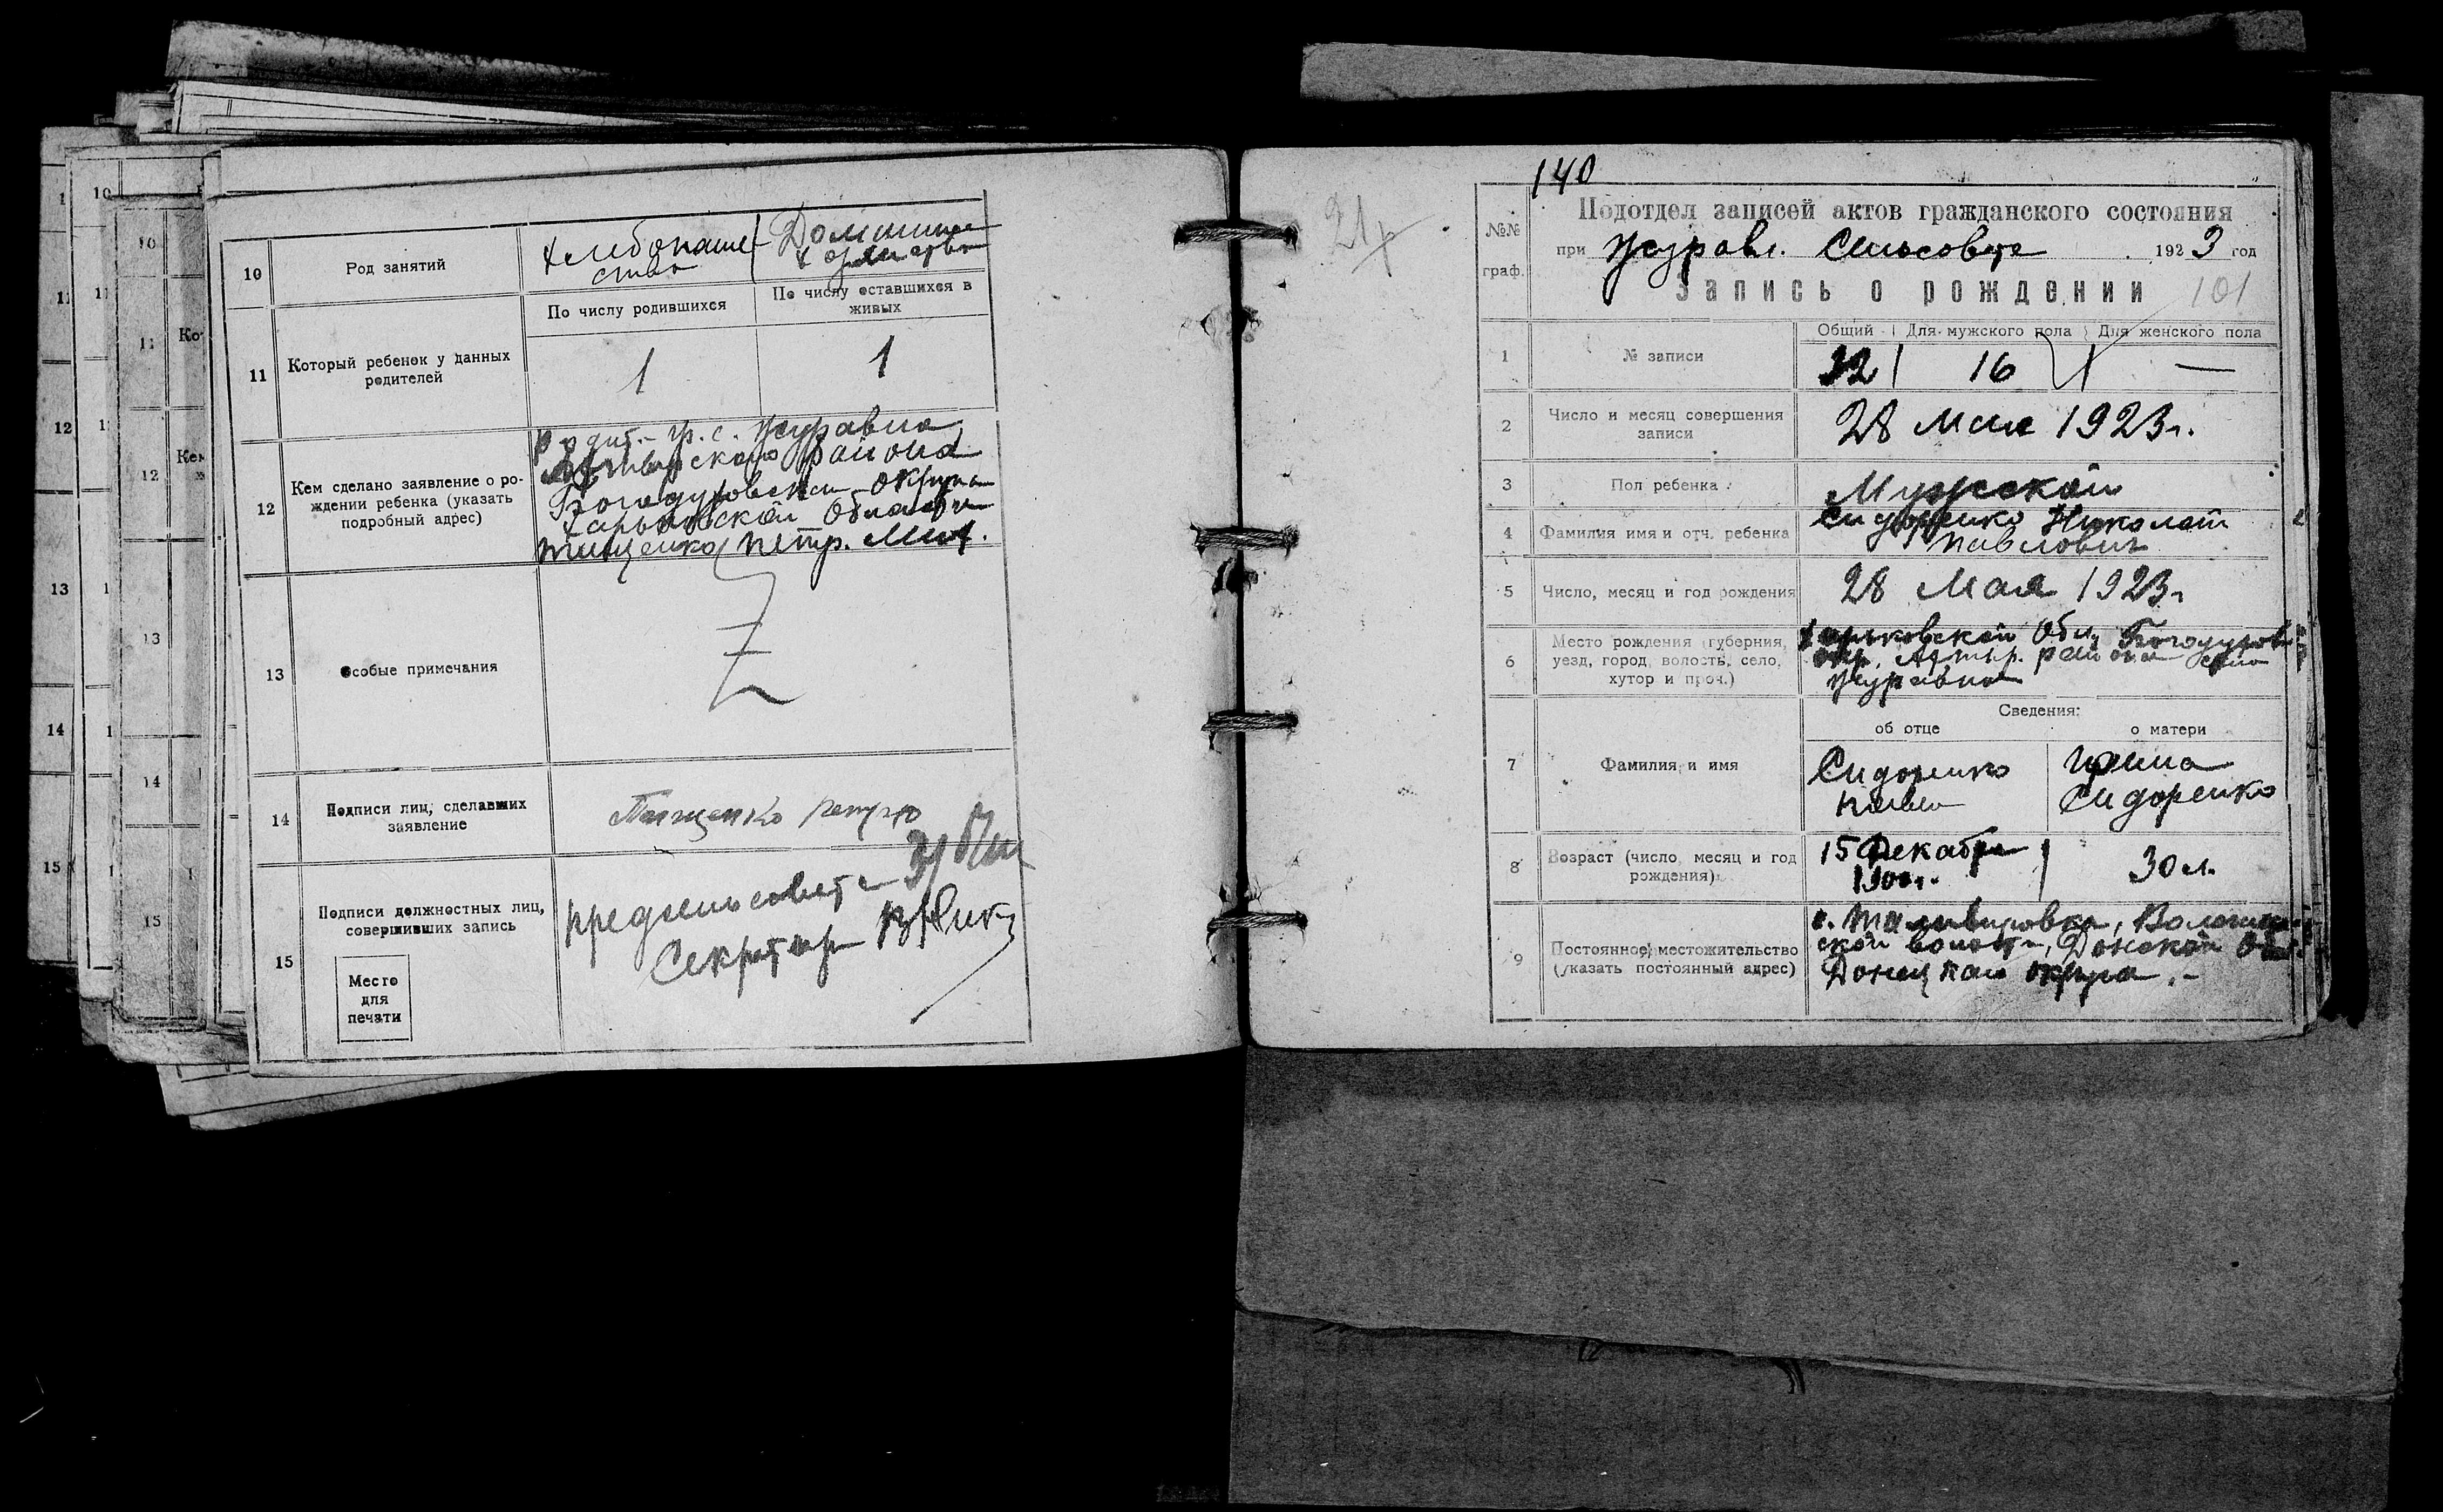 10
Род занятий
хлебопаше-
ство
Домашнее
хозяйство
11
Который ребенок у данных
родителей
По числу родившихся
По числу оставшихся в
живых
1
1
12
Кем сделано заявление о ро-
ждении ребенка (указать
подробный адрес)
гр. с. Журавно
района
Богодуховской округа
Харьковской области
Тищенко Петр. Мих.
13
Особые примечания
14
Подписи лиц, сделавших
заявление
Тищенко Петро
15
Подписи должностных лиц,
совершивших запись
Место
для
печати
предсельсовета
Секретарь
10
11
12
13
14
15
140
21
№№
граф.
Подотдел записей актов гражданского состояния
при Журавл. Сельсовете 1923 год
Запись о рождении
101
1
№ записи
Общий
Для мужского пола
Для женского пола
32
16
—
2
Число и месяц совершения
записи
28 мая 1923 г.
3
Пол ребенка
Мужской
4
Фамилия имя и отч. ребенка
Сидоренко Николай
Павлович
5
Число, месяц и год рождения
28 Мая 1923 г
6
Место рождения (губерния,
уезд, город, волость, село,
хутор и проч.)
Харьковской Обл. Богодухов
окр. Ахтыр. района село
Журавно
Сведения:
об отце
о матери
7
Фамилия и имя
Сидоренко
Павел
Ирина
Сидоренко
8
Возраст (число, месяц и год
рождения)
15 Декабря
1900 г.
30 л.
9
Постоянное местожительство
(указать постоянный адрес)
ской волости, Донской Обл.
Донецкая округа. –